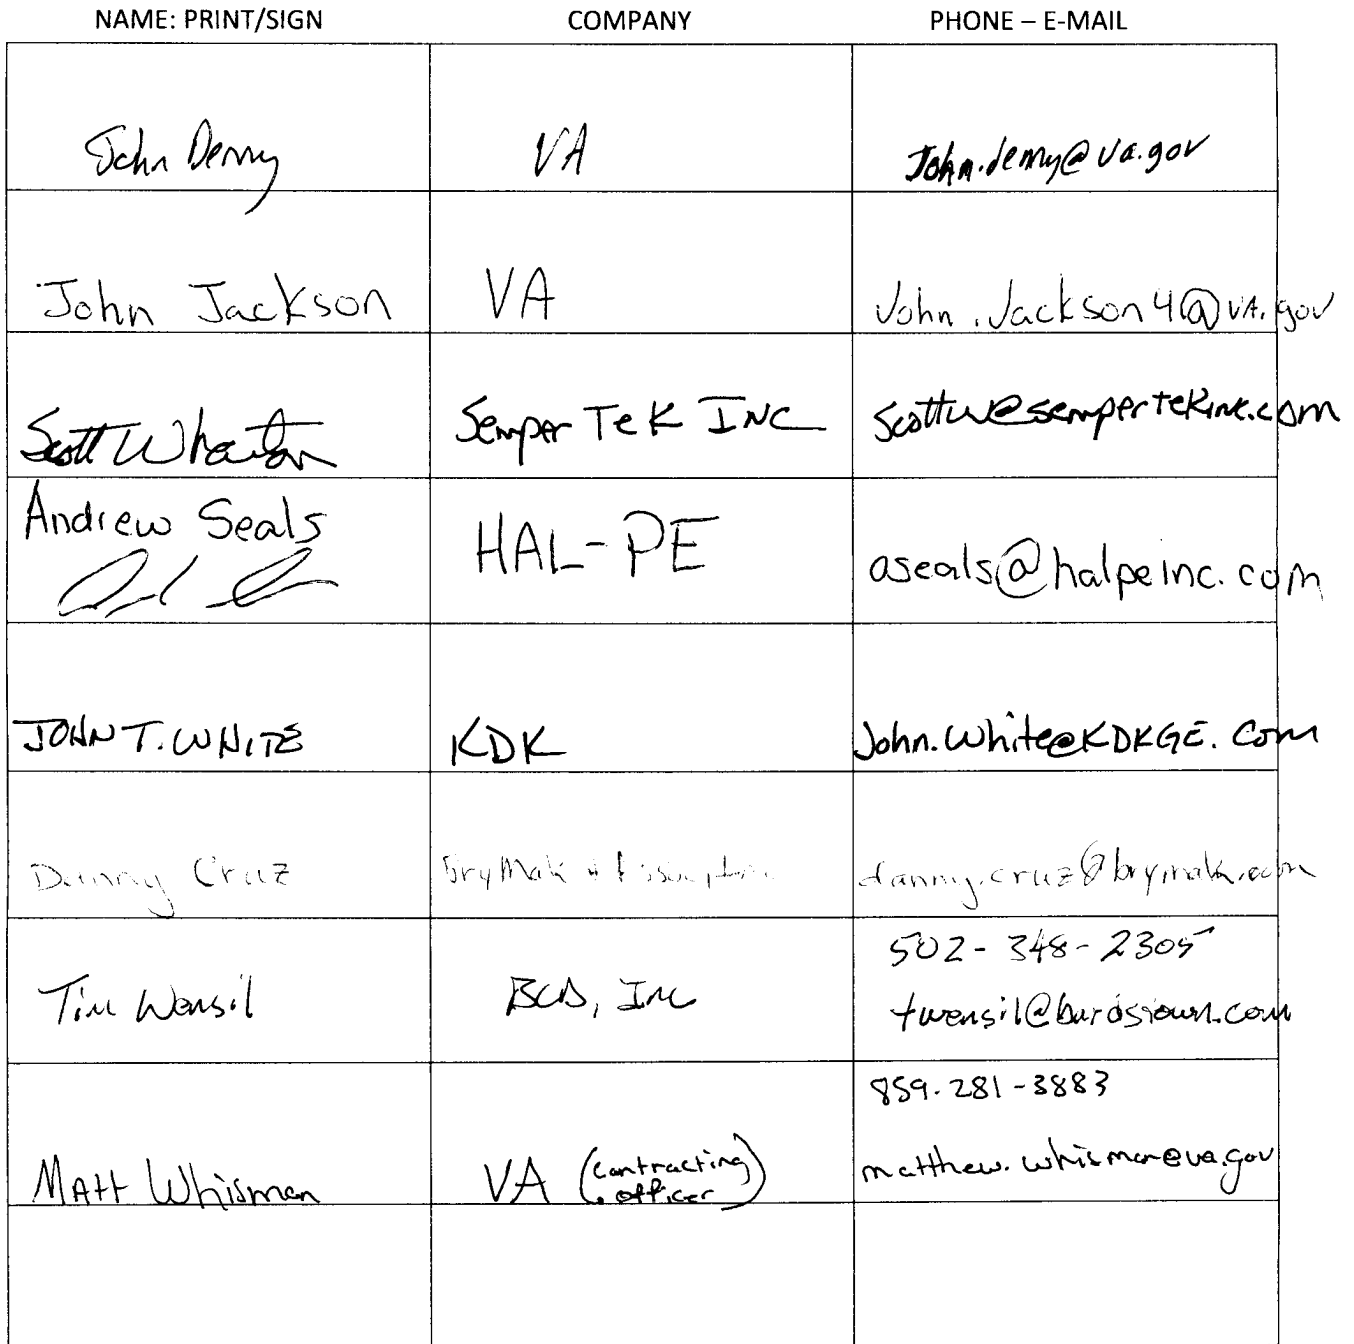 NAME: PRINT/SIGN COMPANY PHONE – E-MAIL
John Demy VA John.demy@va.gov
John Jackson VA John.Jackson4@VA.gov
Scott Wharton Semper Tek INC scottw@sempertekinc.com
Andrew Seals HAL-PE aseals@halpeinc.com
JOHN T. WHITE KDK John.White@KDKGE.com
Danny Cruz BryMak danny.cruz@brymak.com
502-348-2305
Tim Wensil BCD, Inc twensil@bardstown.com
859-281-3883
MAtt Whisman VA (contracting matthew.whisman@va.gov
officer)